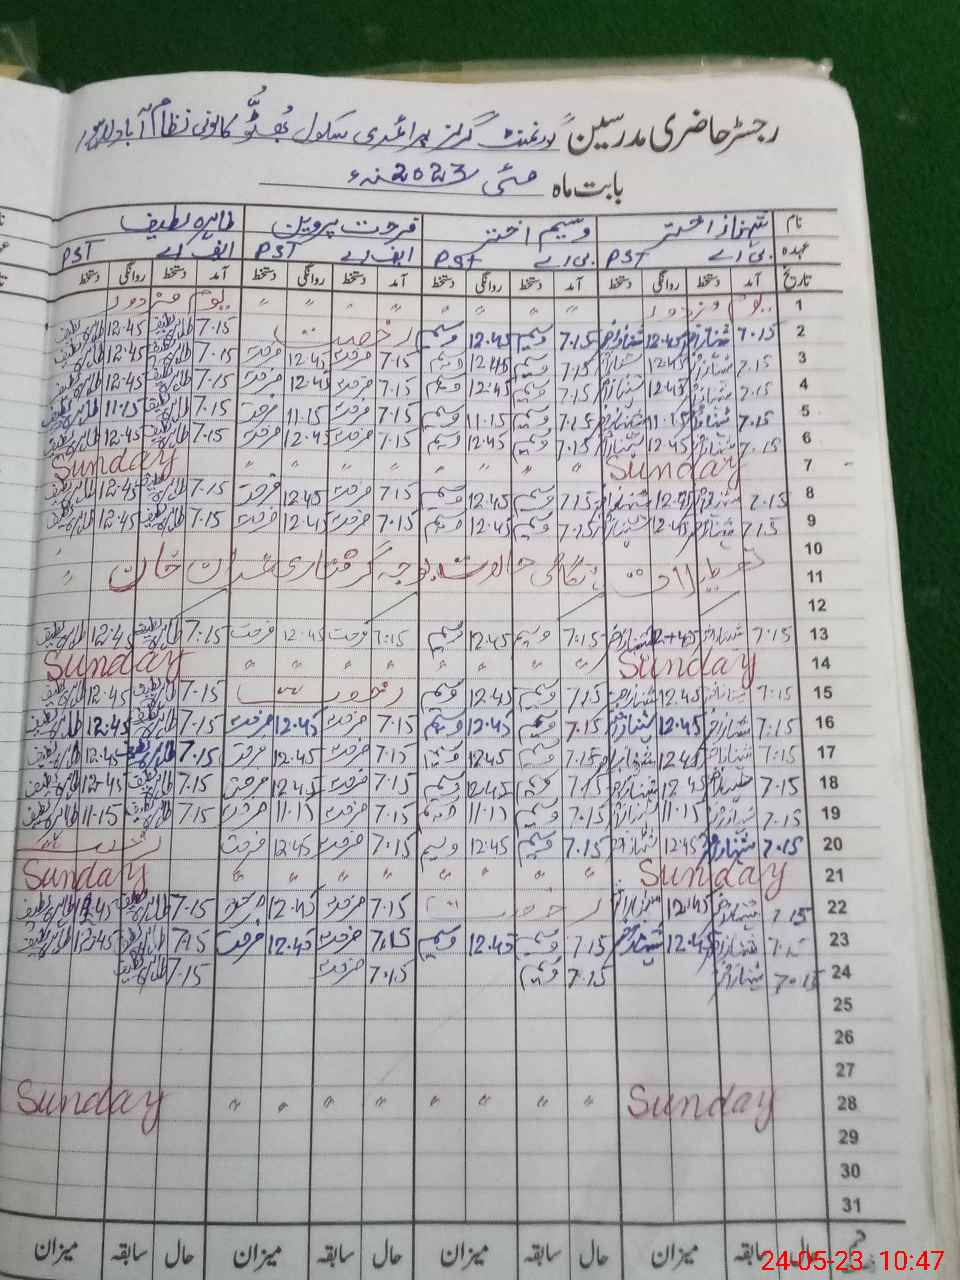 رجسٹر حاضری مدرسین گورنمنٹ گرلز پرائمری سکول بھٹو کالونی نظام آباد
بابت ماہ مئی 2023ء
نام شہناز اختر وسیم اختر فرحت پروین طاہرہ لطیف
عہدہ بی اے PST بی اے PST ایف اے PST ایف اے PST
تاریخ آمد دستخط روانگی دستخط آمد دستخط روانگی دستخط آمد دستخط روانگی دستخط آمد دستخط روانگی دستخط
1 یوم مزدور " " " " " " " " یوم مزدور
2 7.15 شہناز اختر 12.45 شہناز اختر 7.15 وسیم 12.45 وسیم رخصت 7.15 طاہرہ لطیف 12.45 طاہرہ لطیف
3 7.15 شہناز اختر 12.45 شہناز اختر 7.15 وسیم 12.45 وسیم 7.15 فرحت 12.45 فرحت 7.15 طاہرہ لطیف 12.45 طاہرہ لطیف
4 7.15 شہناز اختر 12.45 شہناز اختر 7.15 وسیم 12.45 وسیم 7.15 فرحت 12.45 فرحت 7.15 طاہرہ لطیف 12.45 طاہرہ لطیف
5 7.15 شہناز اختر 11.15 شہناز اختر 7.15 وسیم 11.15 وسیم 7.15 فرحت 11.15 فرحت 7.15 طاہرہ لطیف 11.15 طاہرہ لطیف
6 7.15 شہناز اختر 12.45 شہناز اختر 7.15 وسیم 12.45 وسیم 7.15 فرحت 12.45 فرحت 7.15 طاہرہ لطیف 12.45 طاہرہ لطیف
7 Sunday " " " " " " " " Sunday
8 7.15 شہناز اختر 12.45 شہناز اختر 7.15 وسیم 12.45 وسیم 7.15 فرحت 12.45 فرحت 7.15 طاہرہ لطیف 12.45 طاہرہ لطیف
9 7.15 شہناز اختر 12.45 شہناز اختر 7.15 وسیم 12.45 وسیم 7.15 فرحت 12.45 فرحت 7.15 طاہرہ لطیف 12.45 طاہرہ لطیف
10
11 تعطیلات ہنگامی حالات بوجہ گرفتاری عمران خان "
12
13 7:15 شہناز اختر 12:45 شہناز اختر 7:15 وسیم 12.45 وسیم 7:15 فرحت 12.45 فرحت 7:15 طاہرہ لطیف 12.4 طاہرہ لطیف
14 Sunday " " " " " " " " Sunday
15 7.15 شہناز اختر 12.45 شہناز اختر 7.15 وسیم 12.45 وسیم رخصت 7.15 طاہرہ لطیف 12.45 طاہرہ لطیف
16 7.15 شہناز اختر 12.45 شہناز اختر 7.15 وسیم 12.45 وسیم 7.15 فرحت 12.45 فرحت 7.15 طاہرہ لطیف 12.45 طاہرہ لطیف
17 7.15 شہناز اختر 12.45 شہناز اختر 7.15 وسیم 12.45 وسیم 7.15 فرحت 12.45 فرحت 7.15 طاہرہ لطیف 12.45 طاہرہ لطیف
18 7.15 شہناز اختر 12.45 شہناز اختر 7.15 وسیم 12.45 وسیم 7.15 فرحت 12.45 فرحت 7.15 طاہرہ لطیف 12.45 طاہرہ لطیف
19 7.15 شہناز اختر 11.15 شہناز اختر 7.15 وسیم 11.15 وسیم 7.15 فرحت 11.15 فرحت 7.15 طاہرہ لطیف 11.15 طاہرہ لطیف
20 7.15 شہناز اختر 12.45 شہناز اختر 7.15 وسیم 12.45 وسیم 7.15 فرحت 12.45 فرحت رخصت
21 Sunday " " " " " " " " Sunday
22 7.15 شہناز اختر 12.45 شہناز اختر رخصت 7.15 فرحت 12.45 فرحت 7.15 طاہرہ لطیف 12.45 طاہرہ لطیف
23 7.15 شہناز اختر 12.45 شہناز اختر 7.15 وسیم 12.45 وسیم 7.15 فرحت 12.45 فرحت 7.15 طاہرہ لطیف 12.45 طاہرہ لطیف
24 7.15 شہناز اختر 7.15 وسیم 7.15 فرحت 7.15 طاہرہ لطیف
25
26
27
28 Sunday " " " " " " " " Sunday
29
30
31
حال سابقہ میزان حال سابقہ میزان حال سابقہ میزان حال سابقہ میزان
24-05-23 10:47